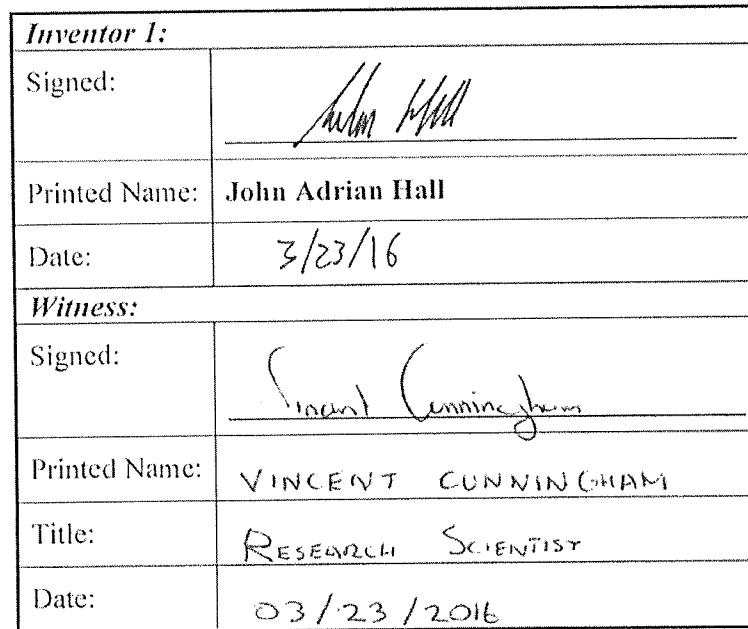 Inventor 1:
Signed:
Printed Name: John Adrian Hall
Date: 3/23/16
Witness:
Signed: Vincent Cunningham
Printed Name: VINCENT CUNNINGHAM
Title: RESEARCH SCIENTIST
Date: 03/23/2016